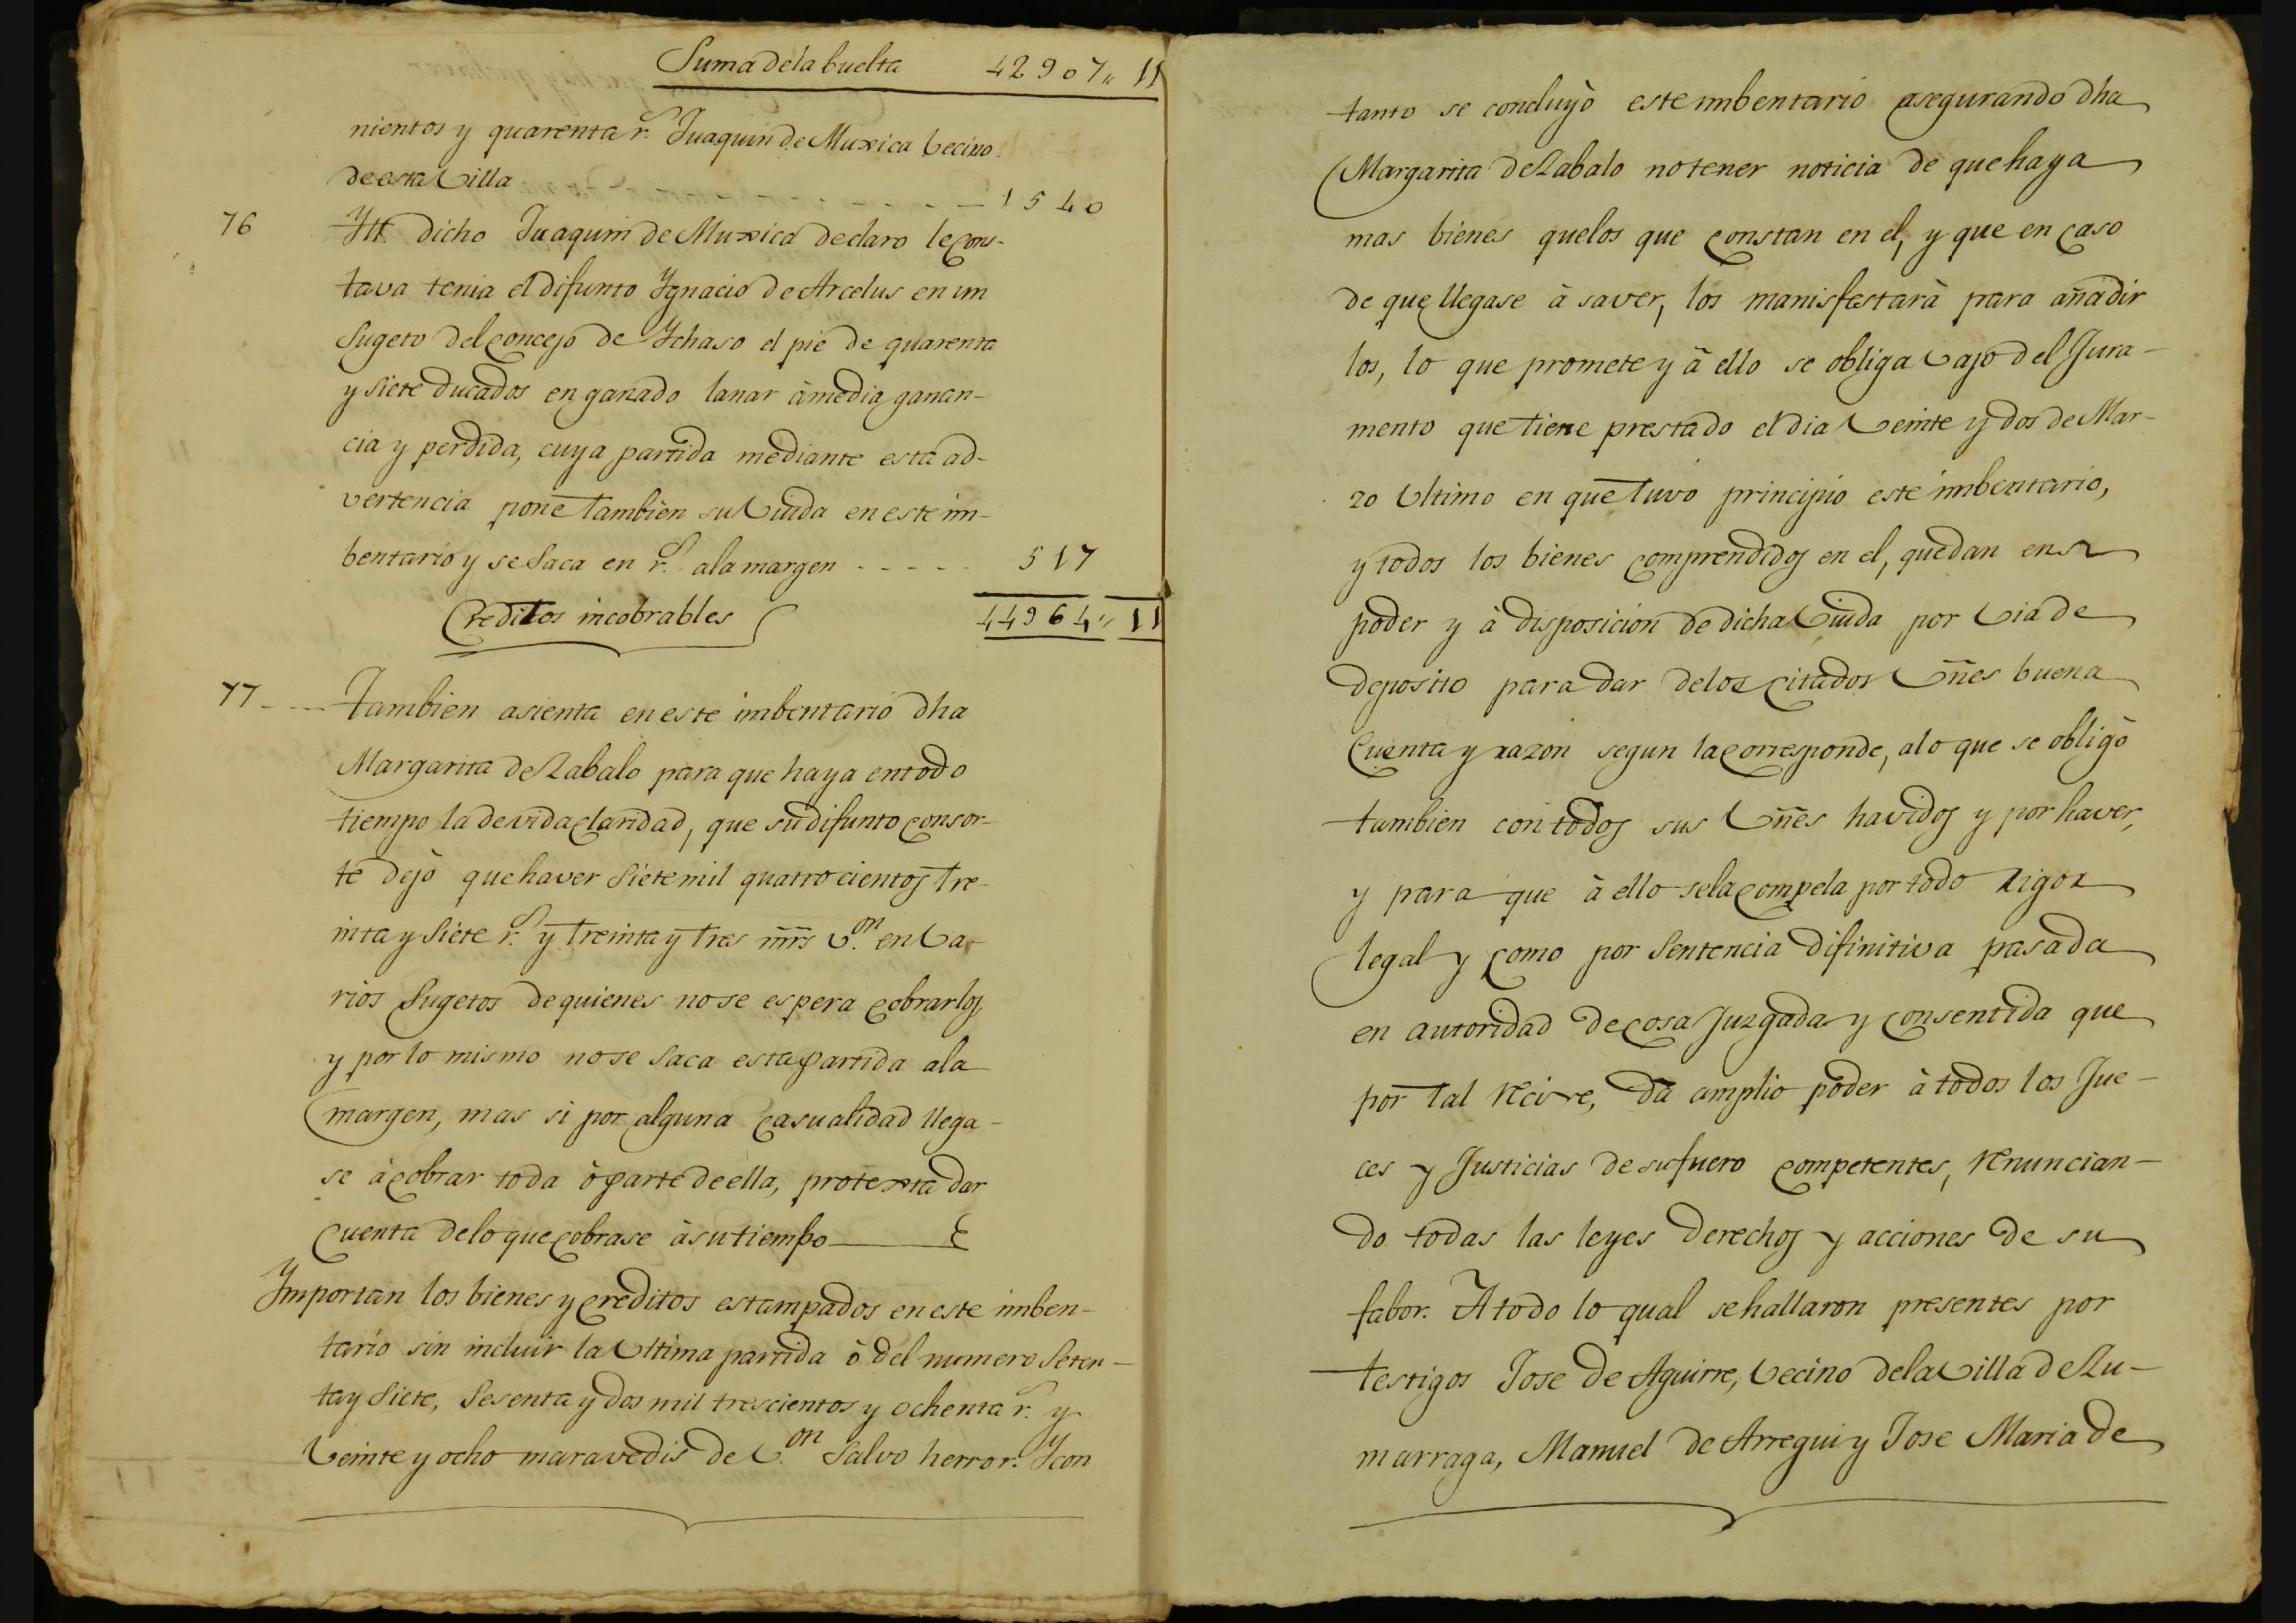 Suma de la buelta 42907,, 11
nientos y quarenta r.s Juaquin de Muxica vecino
de esta villa - - - - - - 1540
76 Ytt dicho Juaquin de Muxica declaro le cons-
tava tenia el difunto Ygnacio de Arcelus en un
Sugeto del concejo de Ychaso el pie de quarenta
y siete ducados en ganado lanar à media ganan-
cia y perdida, cuya partida mediante esta ad-
vertencia pone tambien su viuda en este im-
bentario y se saca en r.s ala margen - - - - - 517
Creditos incobrables 44964,, 11
77 - - - Tambien asienta en este imbentario dha
Margarita de Zabalo para que haya en todo
tiempo la devida claridad, que su difunto consor-
te dejò que haver siete mil quatrocientos tre-
inta y siete r.s y treinta y tres mrs v.on en va-
rios sugetos de quienes no se espera cobrarlos,
y por lo mismo no se saca esta partida ala
margen, mas si por alguna casualidad llega-
se à cobrar toda ò parte de ella, protexta dar
cuenta de lo que cobrase à su tiempo
Ymportan los bienes y creditos estampados en este imben-
tario sin incluir la ultima partida ò del numero seten-
ta y siete, sesenta y dos mil trescientos y ochenta r.s y
veinte y ocho maravedis de v.on salvo herror. Y con
tanto se concluyò este imbentario asegurando dha
Margarita de Zabalo no tener noticia de que haya
mas bienes que los que constan en el, y que en caso
de que llegase à saver, los manisfestarà para añadir
los, lo que promete y à ello se obliga vajo del Jura-
mento que tiene prestado el dia veinte y dos de Mar-
zo ultimo en que tuvo principio este imbentario,
y todos los bienes comprendidos en el, quedan en su
poder y à disposicion de dicha viuda por via de
deposito para dar de los citados vñes buena
cuenta y razon segun la corresponde, alo que se obligò
tambien con todos sus vñes havidos y por haver,
y para que à ello se la compela por todo rigor
legal y como por sentencia difinitiva pasada
en autoridad de cosa Juzgada y consentida que
por tal recive, dà amplio poder à todos los Jue-
ces y Justicias de su fuero competentes, renuncian-
do todas las leyes derechos y acciones de su
fabor. A todo lo qual se hallaron presentes por
testigos Jose de Aguirre, vecino de la villa de Zu-
marraga, Manuel de Arregui y Jose Maria de